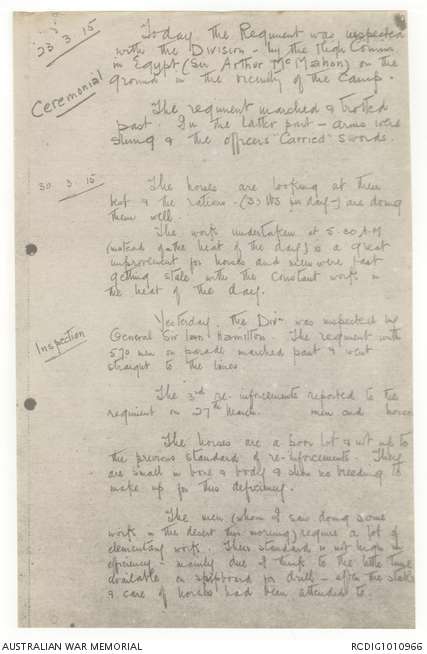 23.3.15
Today the Regiment was inspected
with the Division - by the High Comm.
in Egypt (Sir Arthur McMahon) on the
ground in the vicinity of the camp.
Ceremonial
The regiment marched & trotted
past. In the latter part - arms were
slung & the officers "Carried" swords.
30.3.15
The horses are looking at their
best & the rations - (3) lbs per day -) are doing
them well.
The work undertaken at 5.30 AM
(instead of in the heat of the day) is a great
improvement for horses and men were fast
getting stale with the constant work in
the heat of the day.
Inspection
Yesterday the Divn was inspected by
General Sir Ian Hamilton. The regiment with
570 men on parade marched past & went
straight to the lines
The 3rd re-inforcements reported to the
regiment on 27th March. men and horses
The horses are a poor lot & not up to
the previous standard of re-inforcements. They
are small in bone & body & show no breeding to
make up for this deficiency.
The men (whom I saw doing some
work in the desert this morning) require a lot of
elementary work. Their standard is not high in
efficiency - mainly due I think to the little time
available on shipboard for drill - after the stables
& care of horses had been attended to.
AUSTRALIAN WAR MEMORIAL
RCDIG1010966